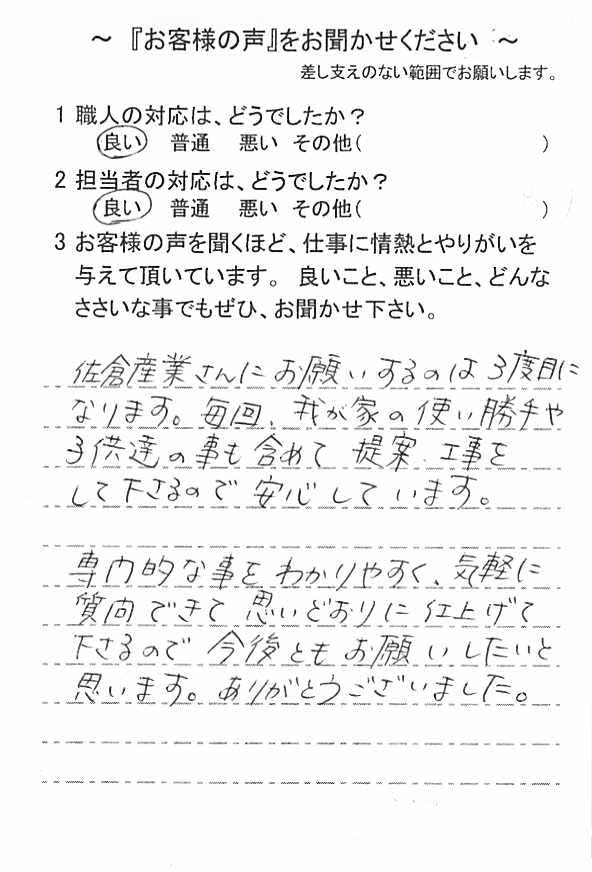 ～『お客様の声』をお聞かせください ～
差し支えのない範囲でお願いします。
1 職人の対応は、どうでしたか？
良い 普通 悪い その他( )
2 担当者の対応は、どうでしたか？
良い 普通 悪い その他( )
3 お客様の声を聞くほど、仕事に情熱とやりがいを
与えて頂いています。 良いこと、悪いこと、どんな
ささいな事でもぜひ、お聞かせ下さい。
佐倉産業さんにお願いするのは3度目に
なります。毎回、我が家の使い勝手や
子供達の事も含めて提案、工事を
して下さるので安心しています。
専門的な事をわかりやすく、気軽に
質問できて思いどおりに仕上げて
下さるので今後ともお願いしたいと
思います。ありがとうございました。